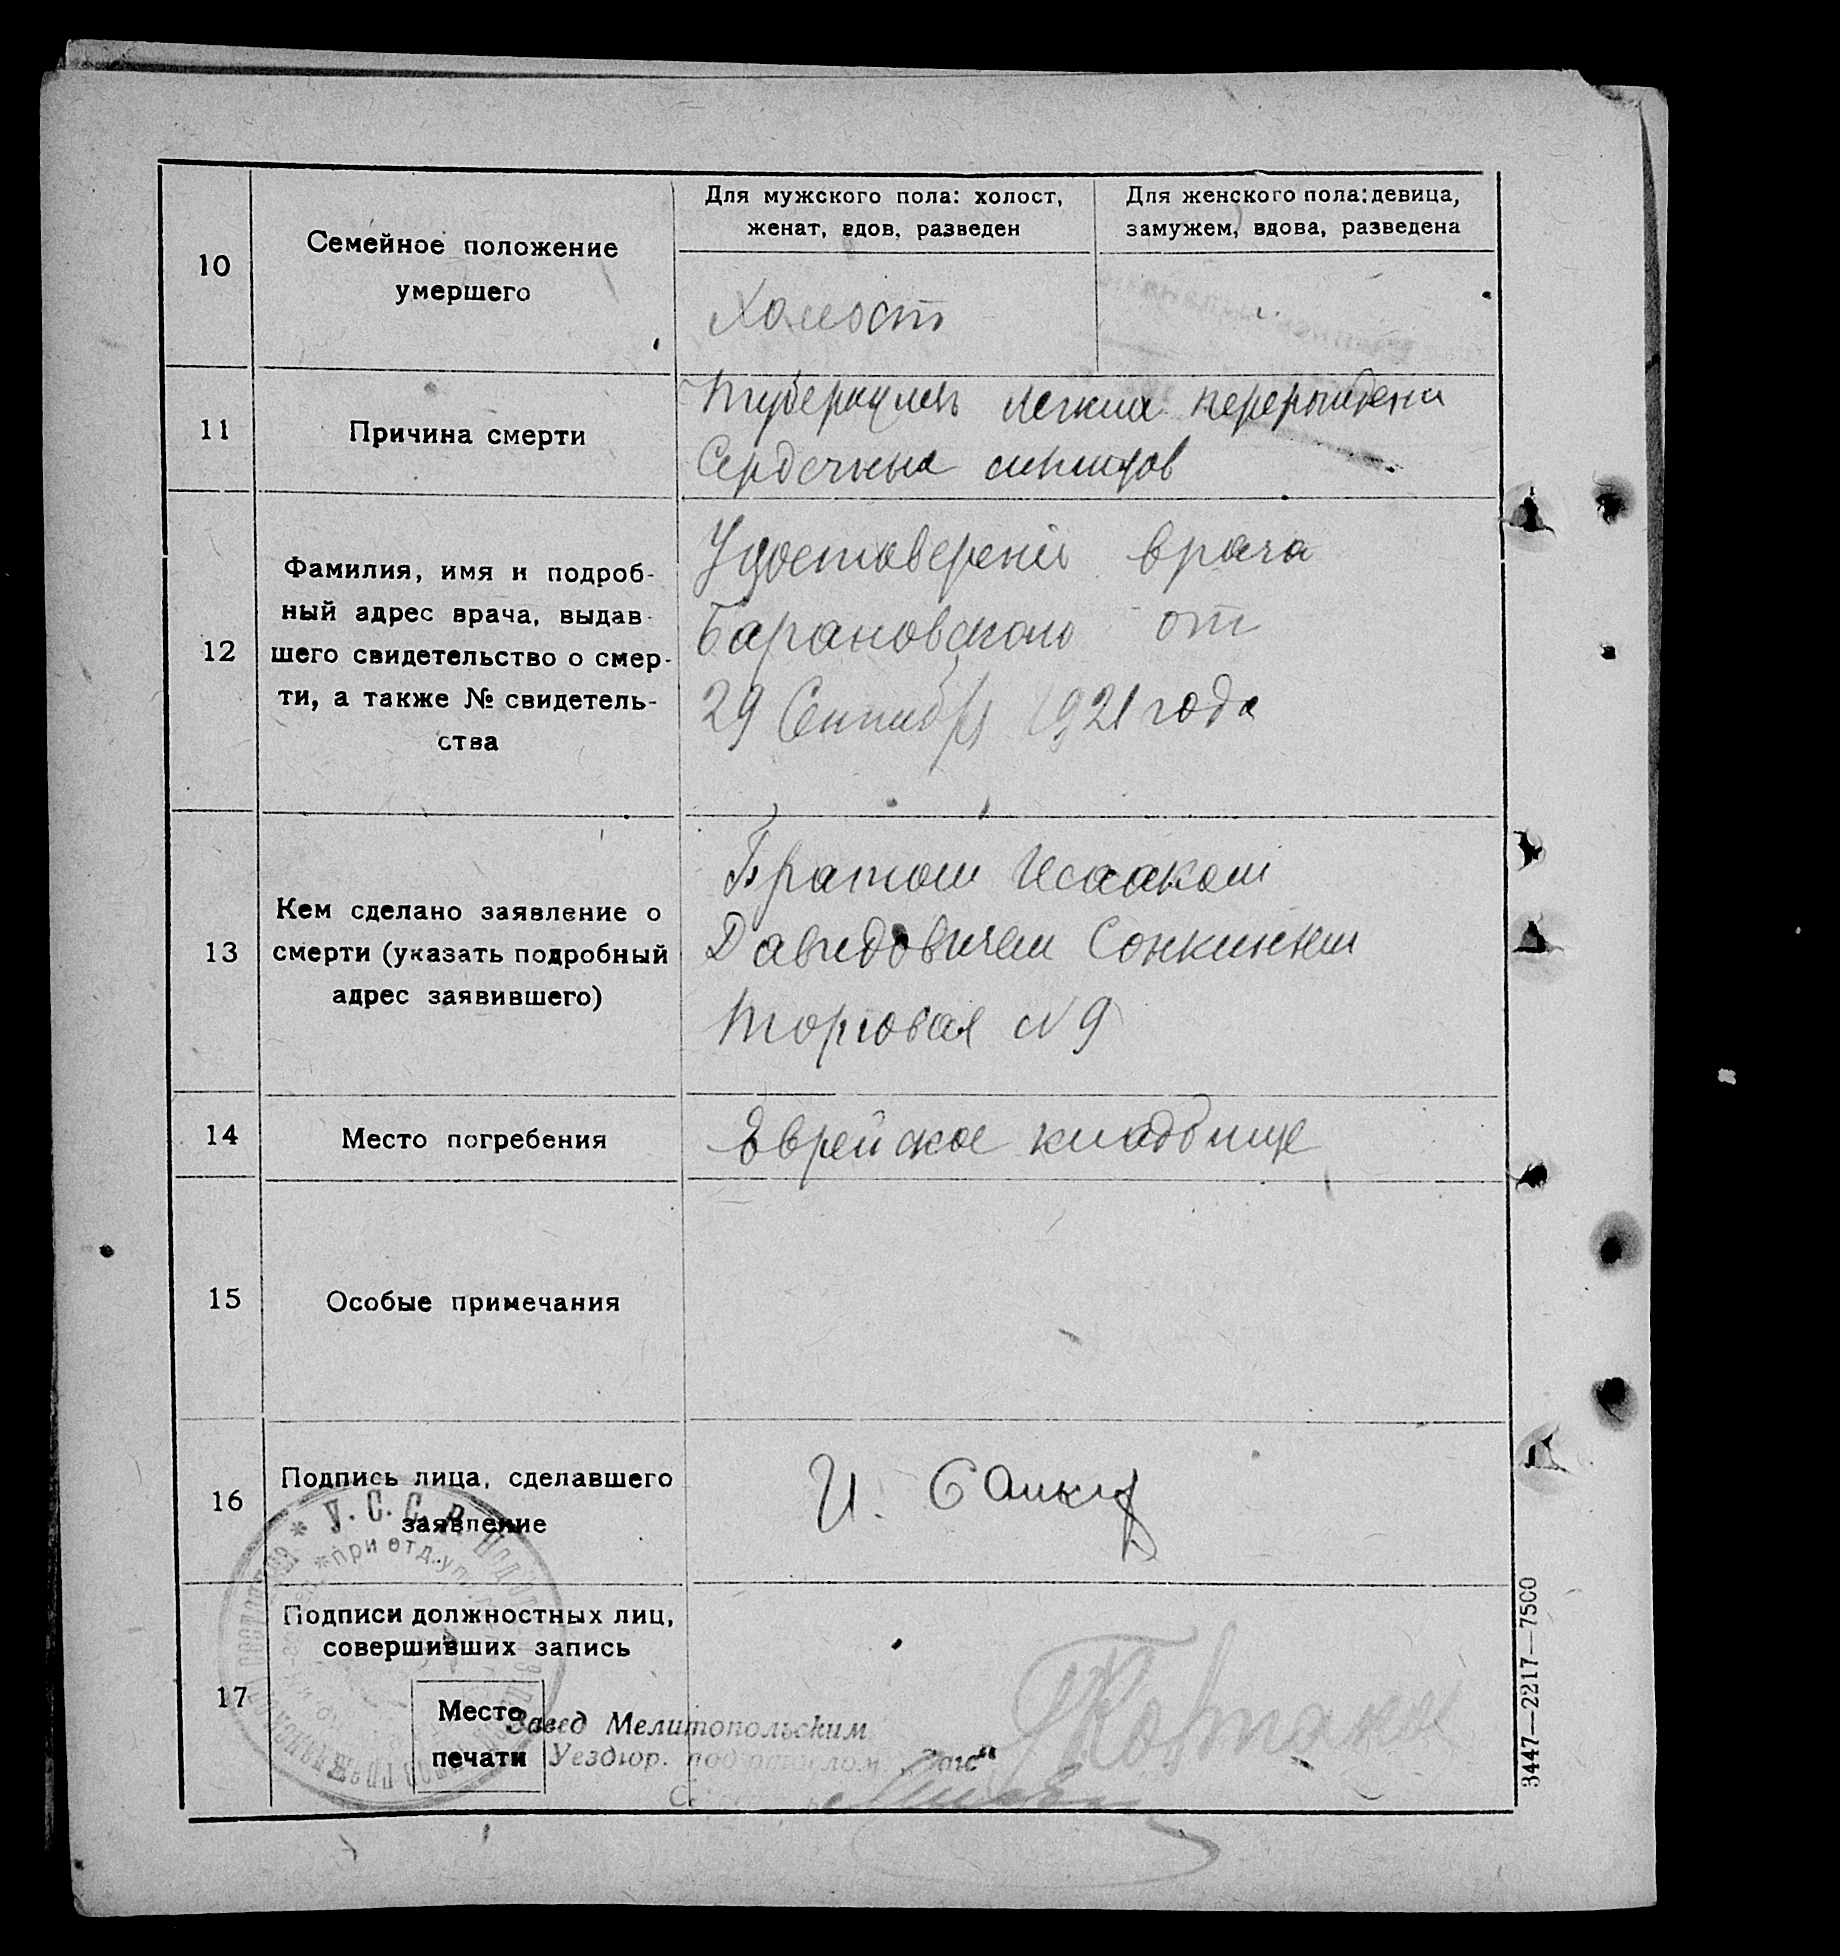 10
Семейное положение
умершего
Для мужского пола: холост,
женат, вдов, разведен
Для женского пола: девица,
замужем, вдова, разведена
Холост
11
Причина смерти
Туберкулез легких перерождени
Сердечных
12
Фамилия, имя и подроб-
ный адрес врача, выдав-
шего свидетельство о смер-
ти, а также № свидетель-
ства
Удостоверение врача
Барановского от
29 Сентября 1921 года
13
Кем сделано заявление о
смерти (указать подробный
адрес заявившего)
Братом Исааком
Давидовичем Сонкиным
Торговая № 9
14
Место погребения
Еврейское кладбище
15
Особые примечания
16
Подпись лица, сделавшего
заявление
И.
17
Подписи должностных лиц,
совершивших запись
Место
печати
У.С.С.Р.
при отд. упр.
Завед Мелитопольским
Уездюр.
3447—2217—7500